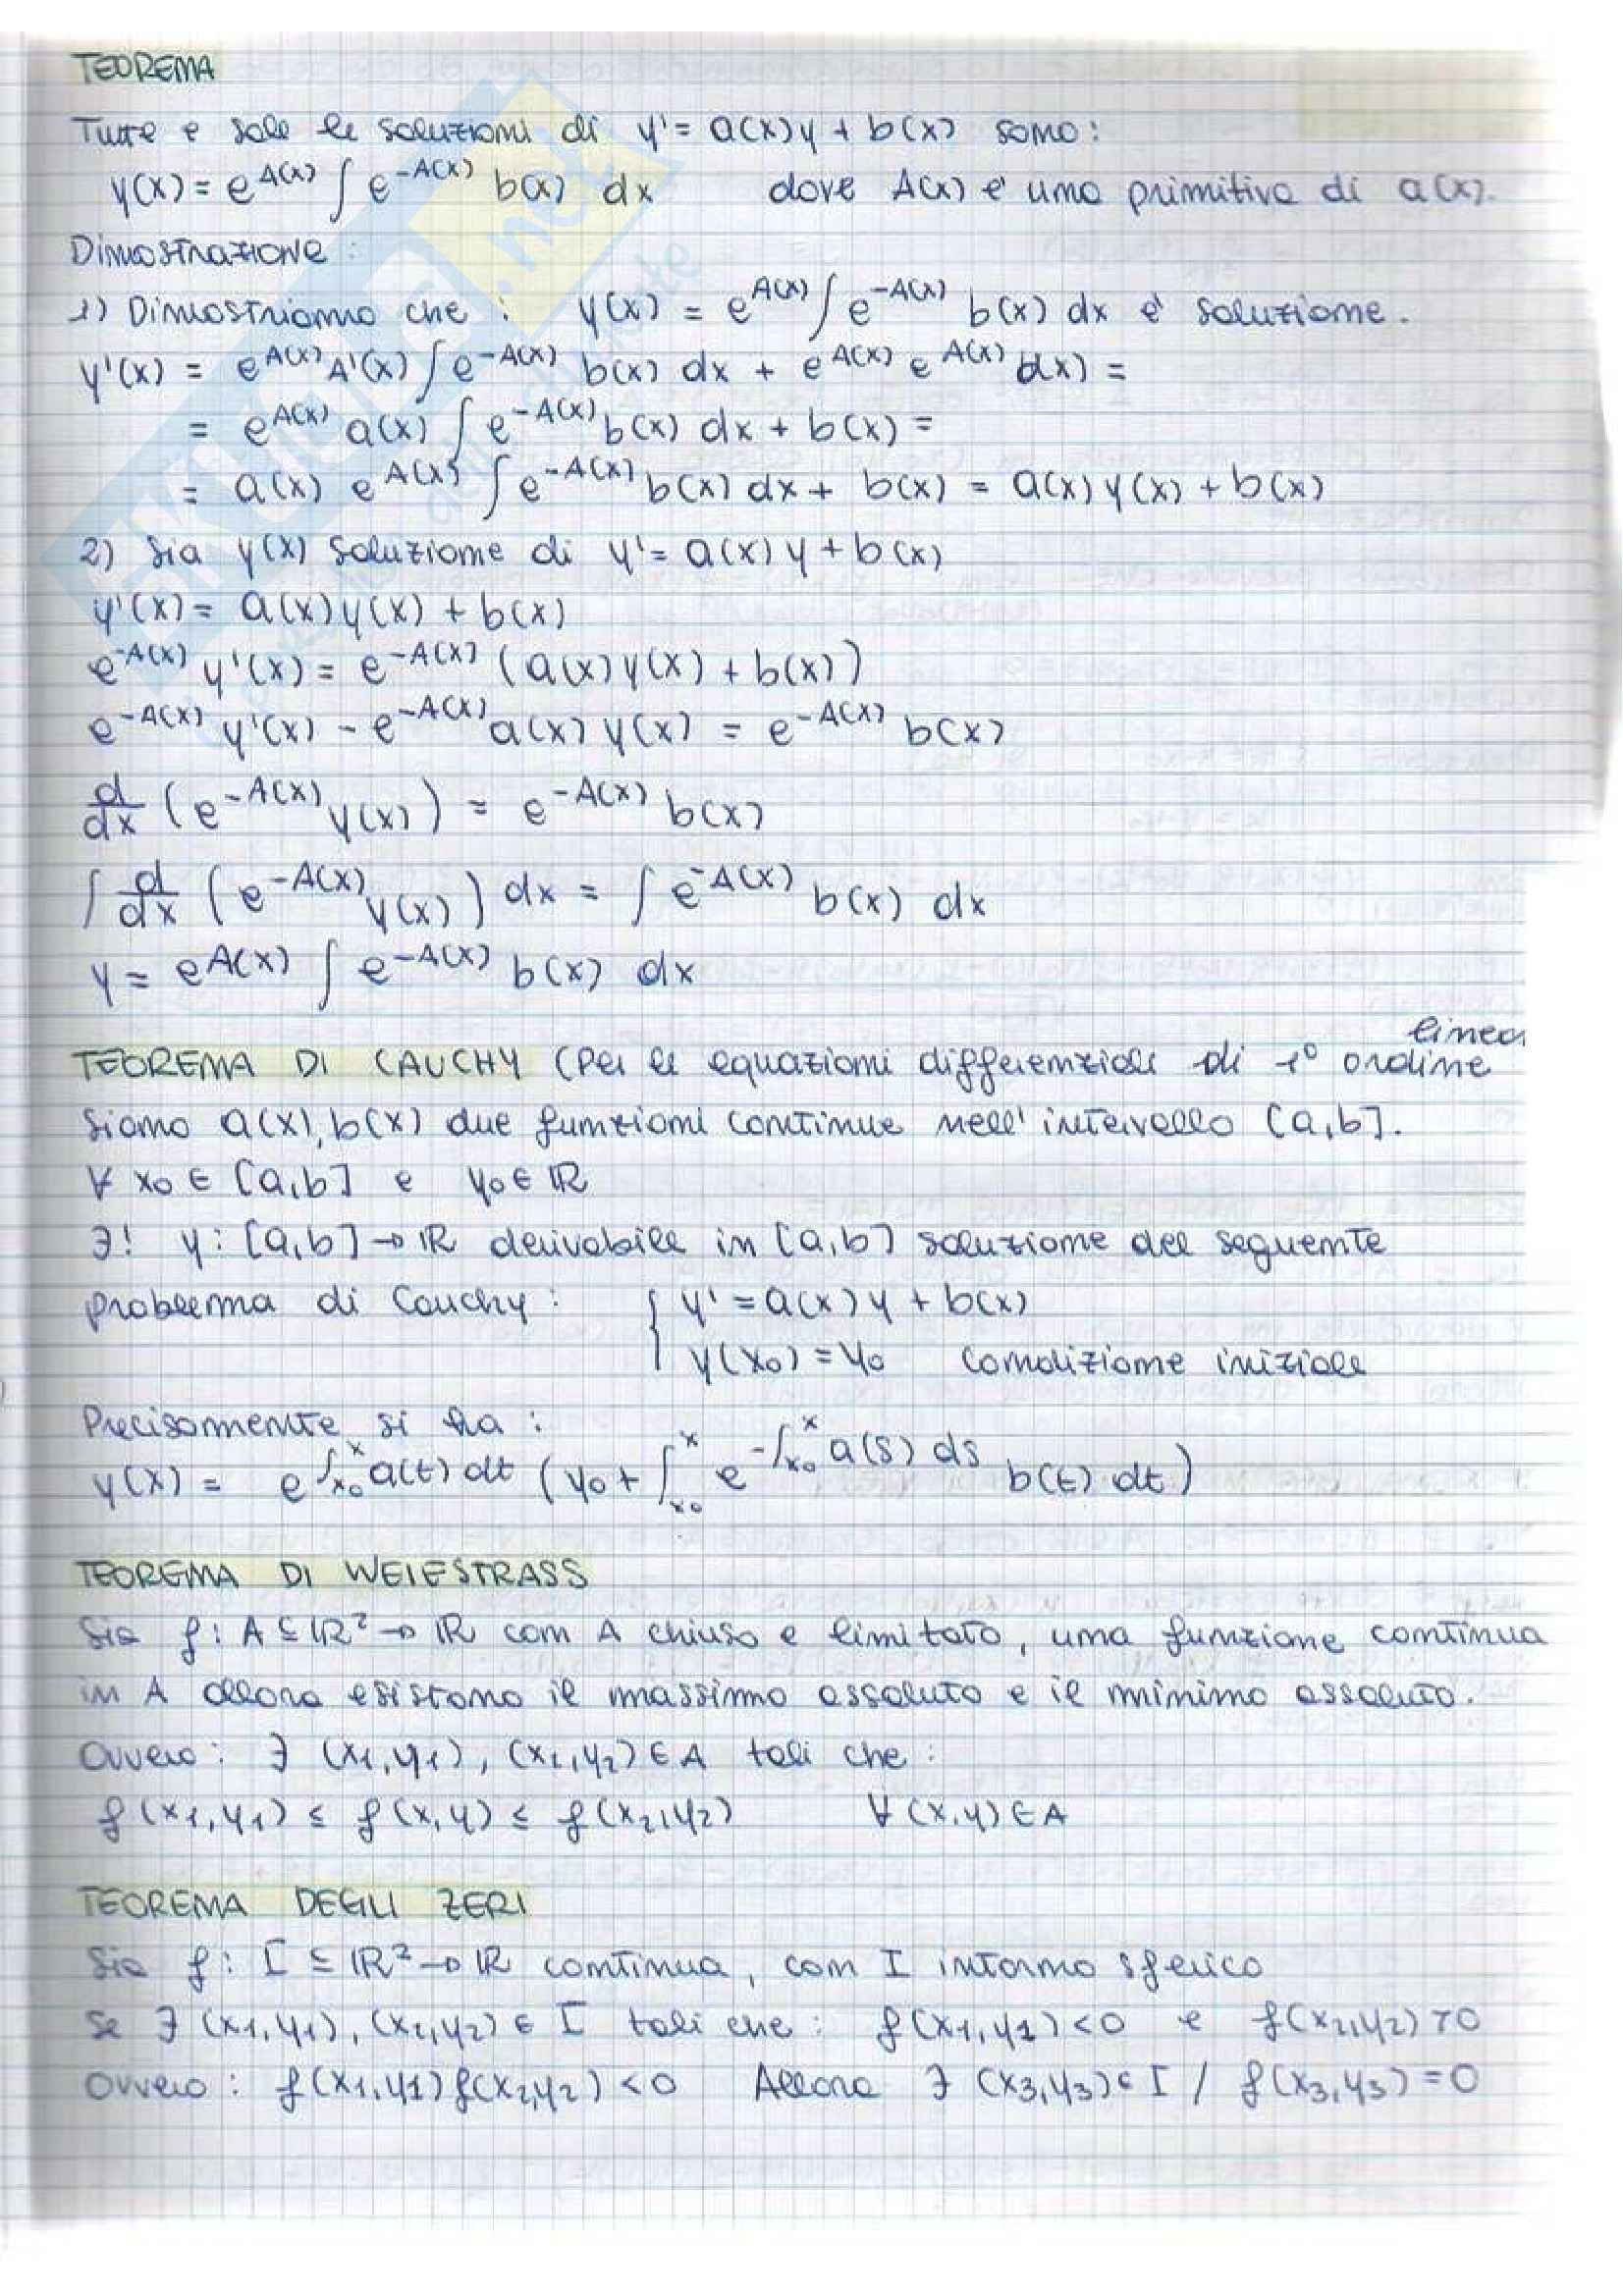 TEOREMA
Tutte e sole le soluzioni di y' = a(x)y + b(x) sono:
y(x) = e^A(x) ∫ e^-A(x) b(x) dx dove A(x) e' una primitiva di a(x).
Dimostrazione:
1) Dimostriamo che : y(x) = e^A(x) ∫ e^-A(x) b(x) dx e' soluzione.
y'(x) = e^A(x) A'(x) ∫ e^-A(x) b(x) dx + e^A(x) e^A(x) b(x) =
= e^A(x) a(x) ∫ e^-A(x) b(x) dx + b(x) =
= a(x) e^A(x) ∫ e^-A(x) b(x) dx + b(x) = a(x) y(x) + b(x)
2) Sia y(x) soluzione di y' = a(x) y + b(x)
y'(x) = a(x) y(x) + b(x)
e^-A(x) y'(x) = e^-A(x) (a(x) y(x) + b(x))
e^-A(x) y'(x) - e^-A(x) a(x) y(x) = e^-A(x) b(x)
d/dx (e^-A(x) y(x)) = e^-A(x) b(x)
∫ d/dx (e^-A(x) y(x)) dx = ∫ e^-A(x) b(x) dx
y = e^A(x) ∫ e^-A(x) b(x) dx
lineari
TEOREMA DI CAUCHY (Per le equazioni differenziali di 1° ordine
Siano a(x), b(x) due funzioni continue nell'intervallo [a,b].
∀ x0 ∈ [a,b] e y0 ∈ ℝ
∃! y : [a,b] → ℝ derivabile in [a,b] soluzione del seguente
problema di Cauchy : { y' = a(x) y + b(x)
y(x0) = y0 condizione iniziale
Precisamente si ha :
y(x) = e^∫_x0^x a(t) dt (y0 + ∫_x0^x e^-∫_x0^x a(s) ds b(t) dt)
TEOREMA DI WEIESTRASS
Sia f : A ⊆ ℝ² → ℝ con A chiuso e limitato, una funzione continua
in A allora esistono il massimo assoluto e il minimo assoluto.
Ovvero : ∃ (x1,y1), (x2,y2) ∈ A tali che :
f(x1,y1) ≤ f(x,y) ≤ f(x2,y2) ∀ (x,y) ∈ A
TEOREMA DEGLI ZERI
Sia f : I ⊆ ℝ² → ℝ continua, con I intorno sferico
Se ∃ (x1,y1), (x2,y2) ∈ I tali che : f(x1,y1) < 0 e f(x2,y2) > 0
Ovvero : f(x1,y1) f(x2,y2) < 0 Allora ∃ (x3,y3) ∈ I / f(x3,y3) = 0